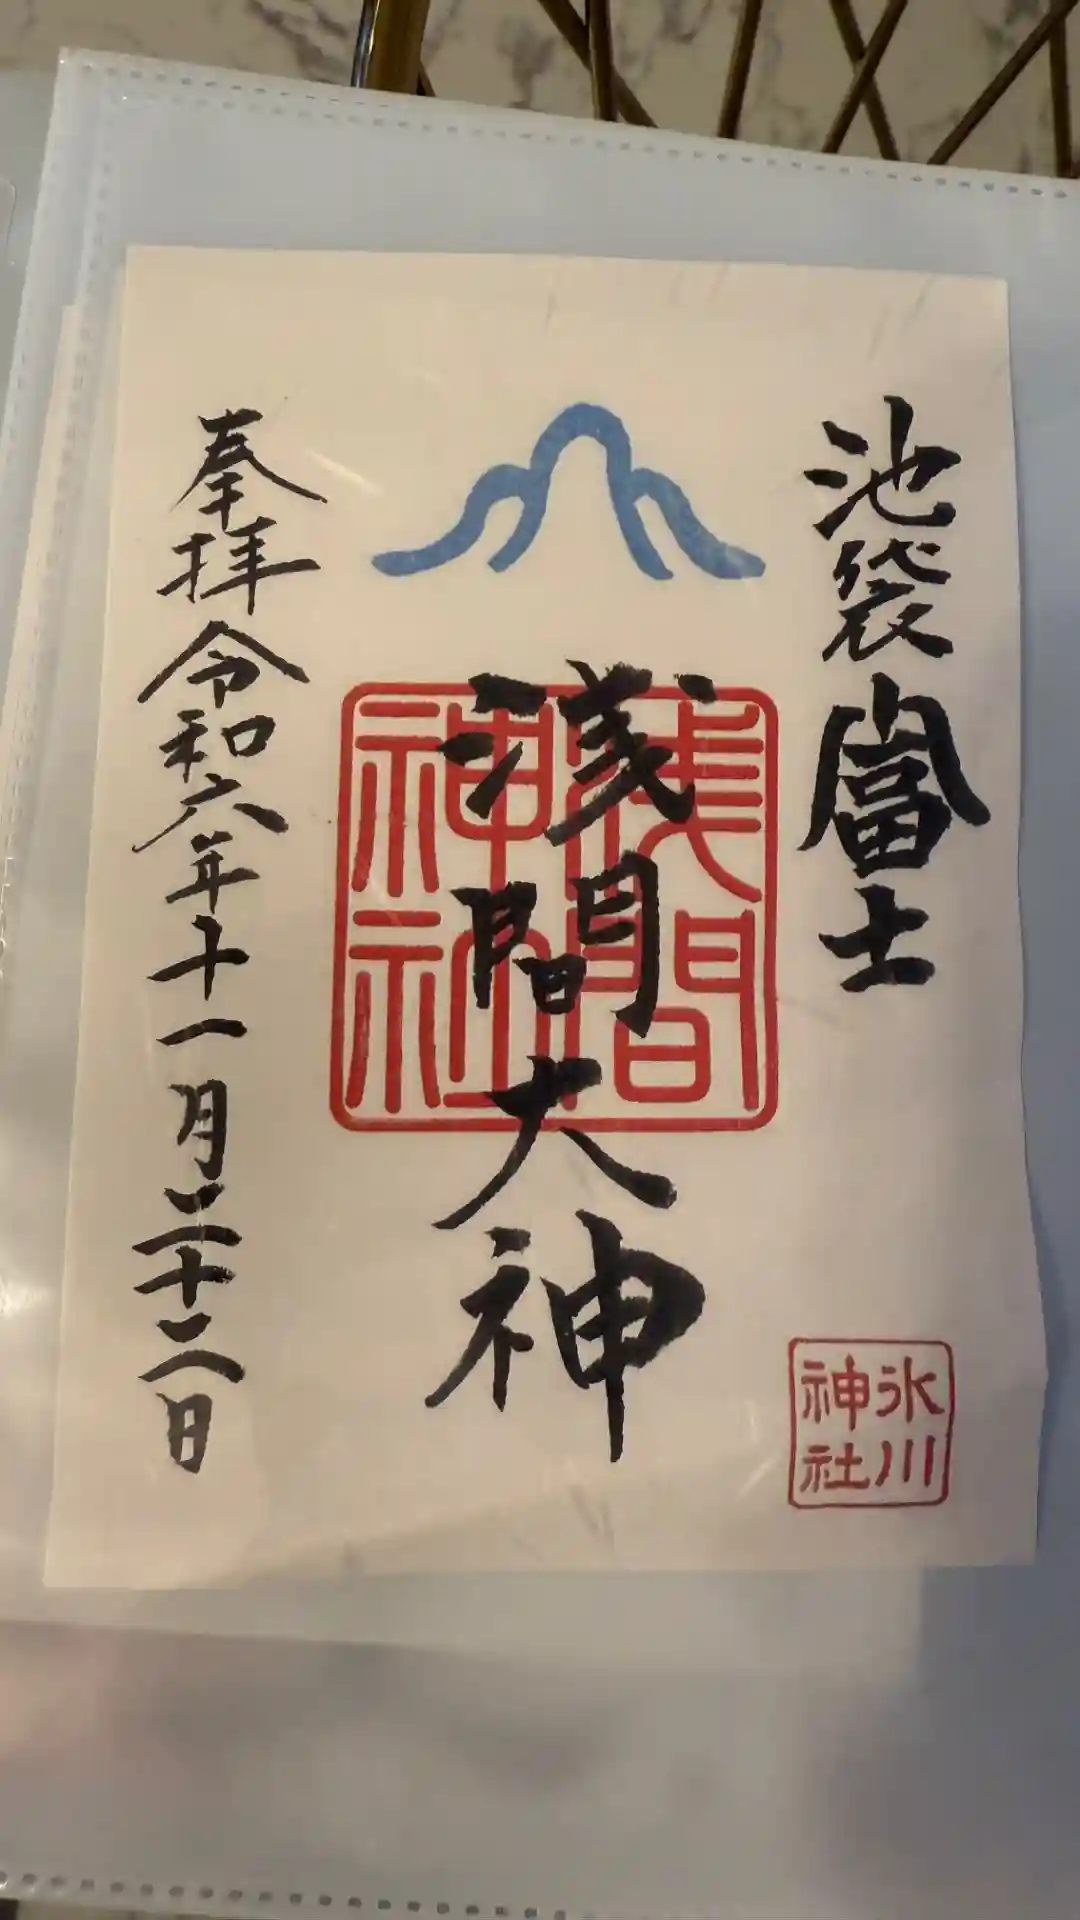 池袋富士
氷川
神社
浅間大神
浅間
神社
奉拝 令和六年十一月二十二日